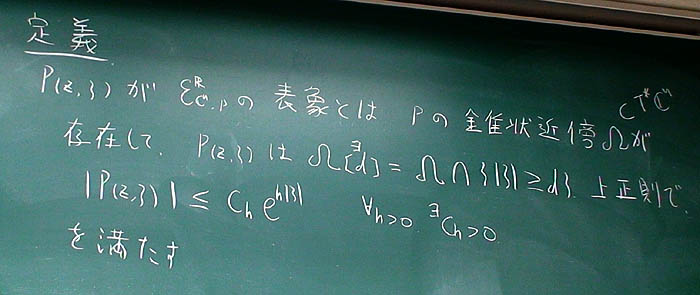 定義
P(z,ζ)が ℰ^ℝ_{ℂⁿ,p}の 表象とは pの 錐状近傍Ωが ⊂T*ℂⁿ
存在して、P(z,ζ)は Ω[∃d] = Ω∩{|ζ|≥d} 上正則で
|P(z,ζ)| ≤ C_h e^{h|ζ|} ∀h>0 ∃C_h>0
を満たす